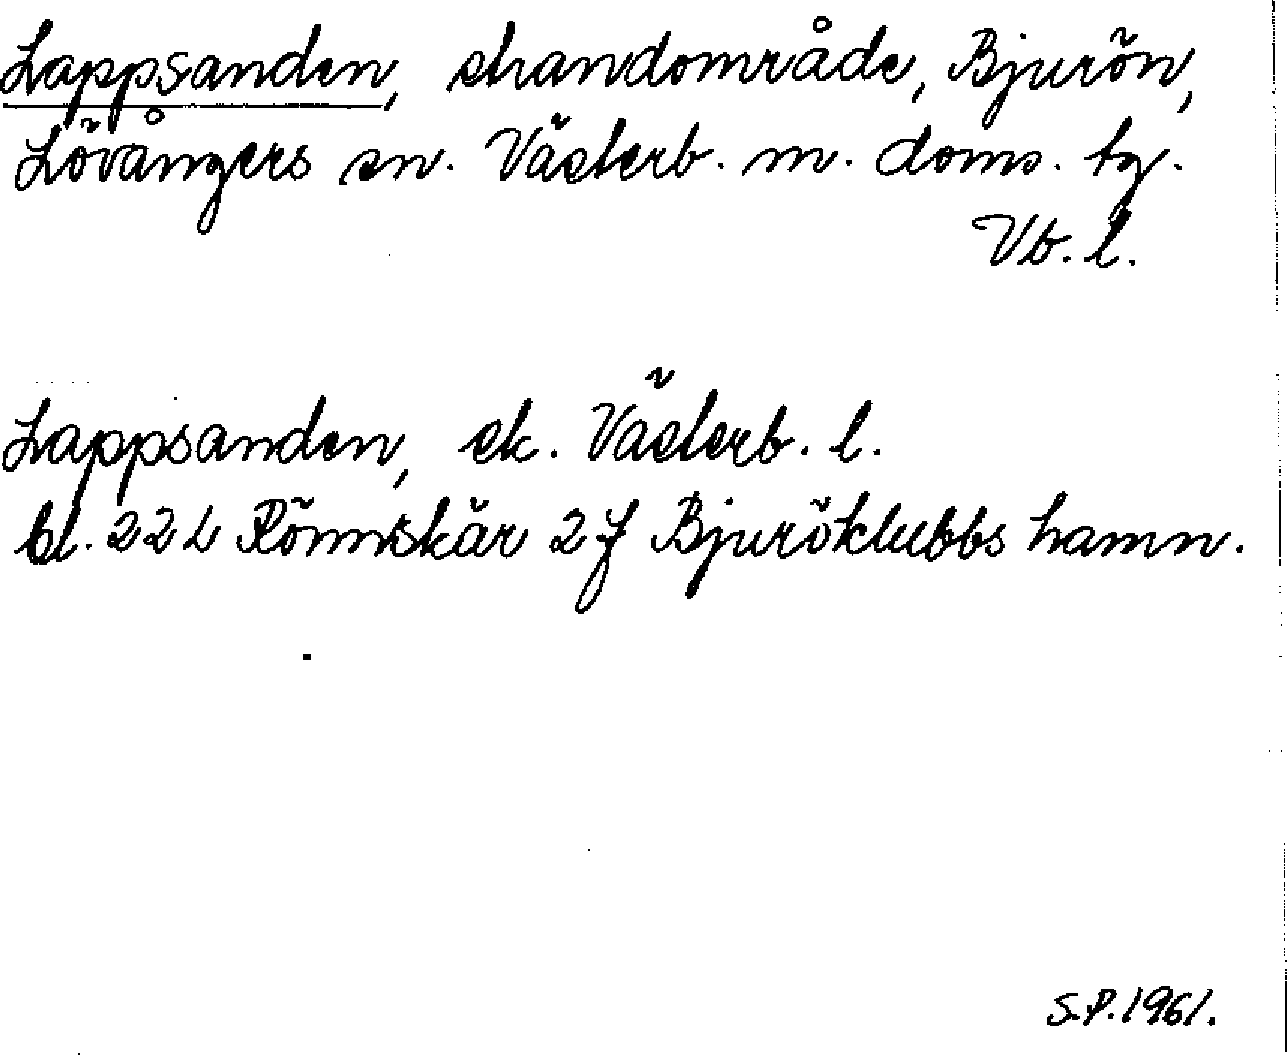 Lappsanden, strandområde, Bjurön,
Lövångers sn. Västerb. m. doms. tg.
Vb. l.
Lappsanden, ek. Västerb. l.
bl. 22L Rönnskär 2f Bjuröklubbs hamn.
S.P. 1961.